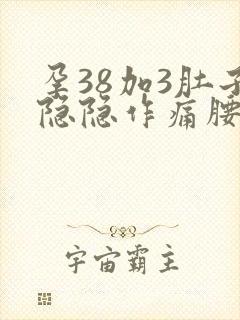 孕38加3肚子
隐隐作痛腰
宇宙霸主